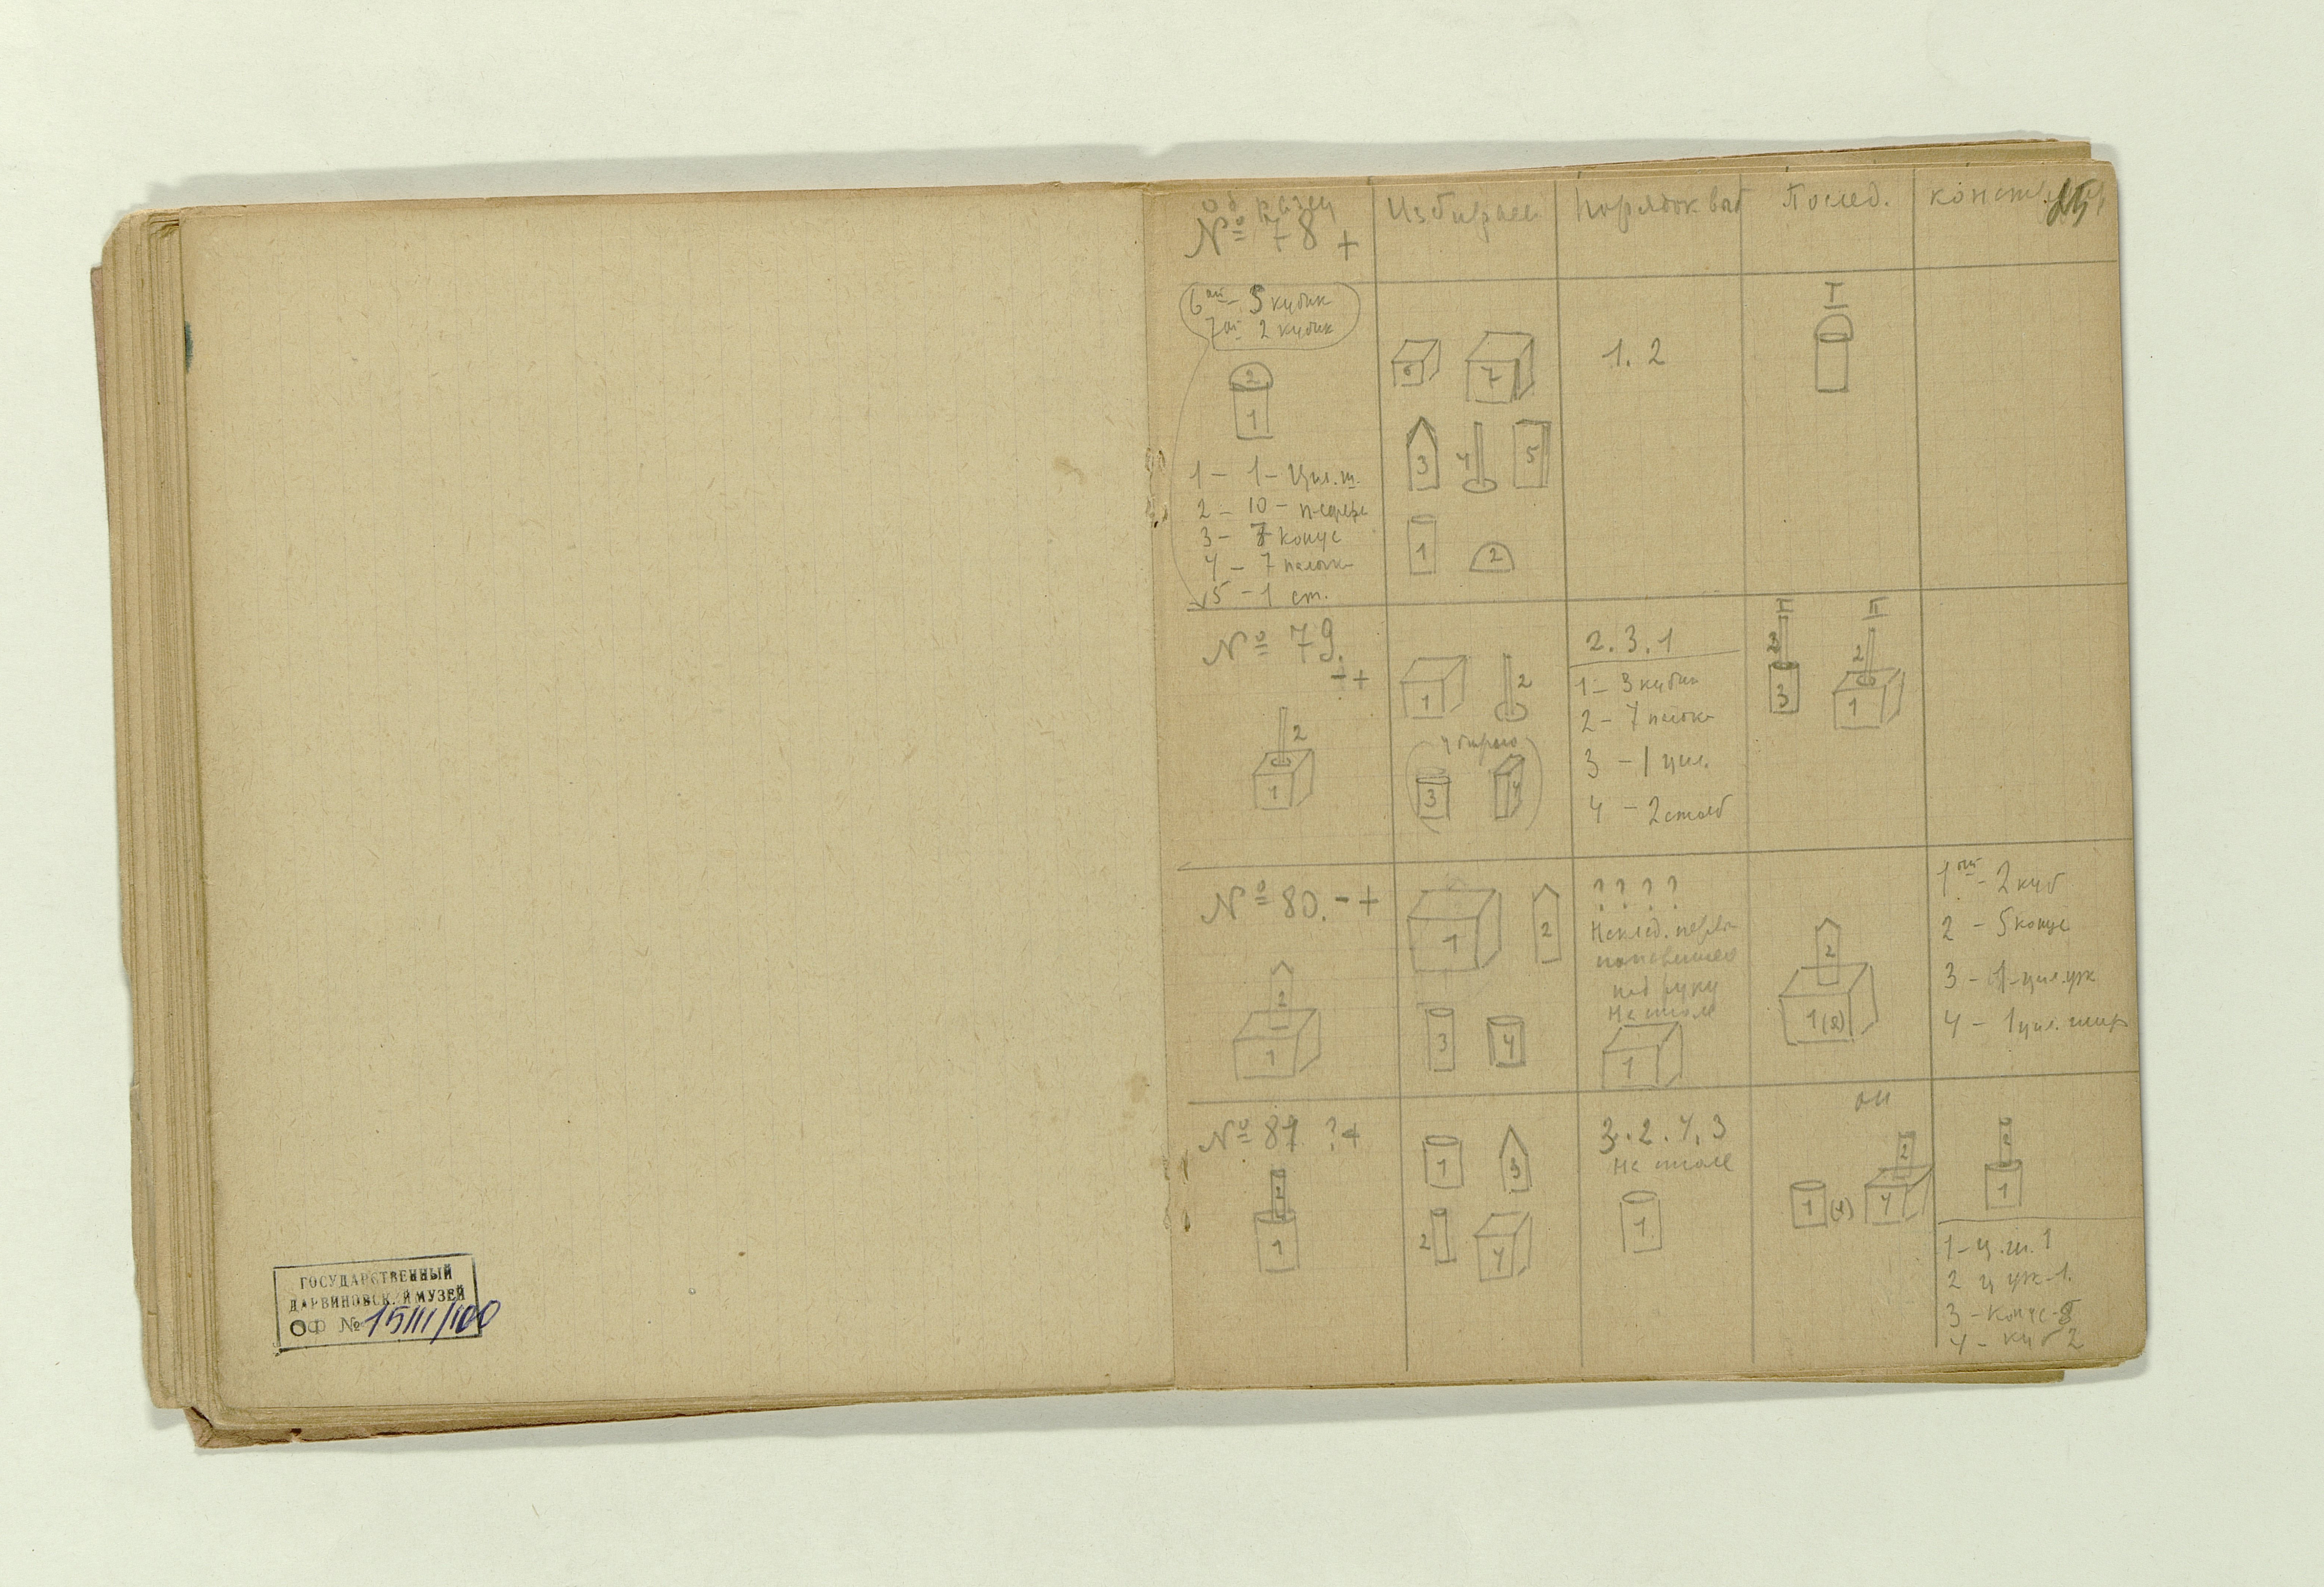 ГОСУДАРСТВЕННЫЙ
ДАРВИНОВСКИЙ МУЗЕЙ
ОФ № 15111/100
Образец
№ 78 +
Избирает
Порядок выб
Послед.
констр
25
6ой - 5 кубик
7ой 2 кубик
2
1
1 - 1 - Цил. ш.
2 - 10 - п-сфера
3 - 7 конус
4 - 7 палочк
5 - 1 ст.
6 7
3 4 5
1 2
1. 2
I
№ 79.
- +
2
1
1 2
3 4
2. 3. 1
1 - 3 кубик
2 - 7 палочк
3 - 1 цил.
4 - 2 столб
I II
2 2
3 1
№ 80. - +
2
1
1 2
3 4
? ? ? ?
под руку
На столе
1
2
1(2)
1ый - 2 куб
2 - 5 конус
3 - 1 - цил. уж
4 - 1 цил. шир
№ 81 ? +
2
1
1 3
2 4
3. 2. 4. 3
На столе
1
2
1 (4) 4
2
1
1 - ц. ш. 1
2 ц уж - 1.
3 - Конус - 5
4 - куб 2